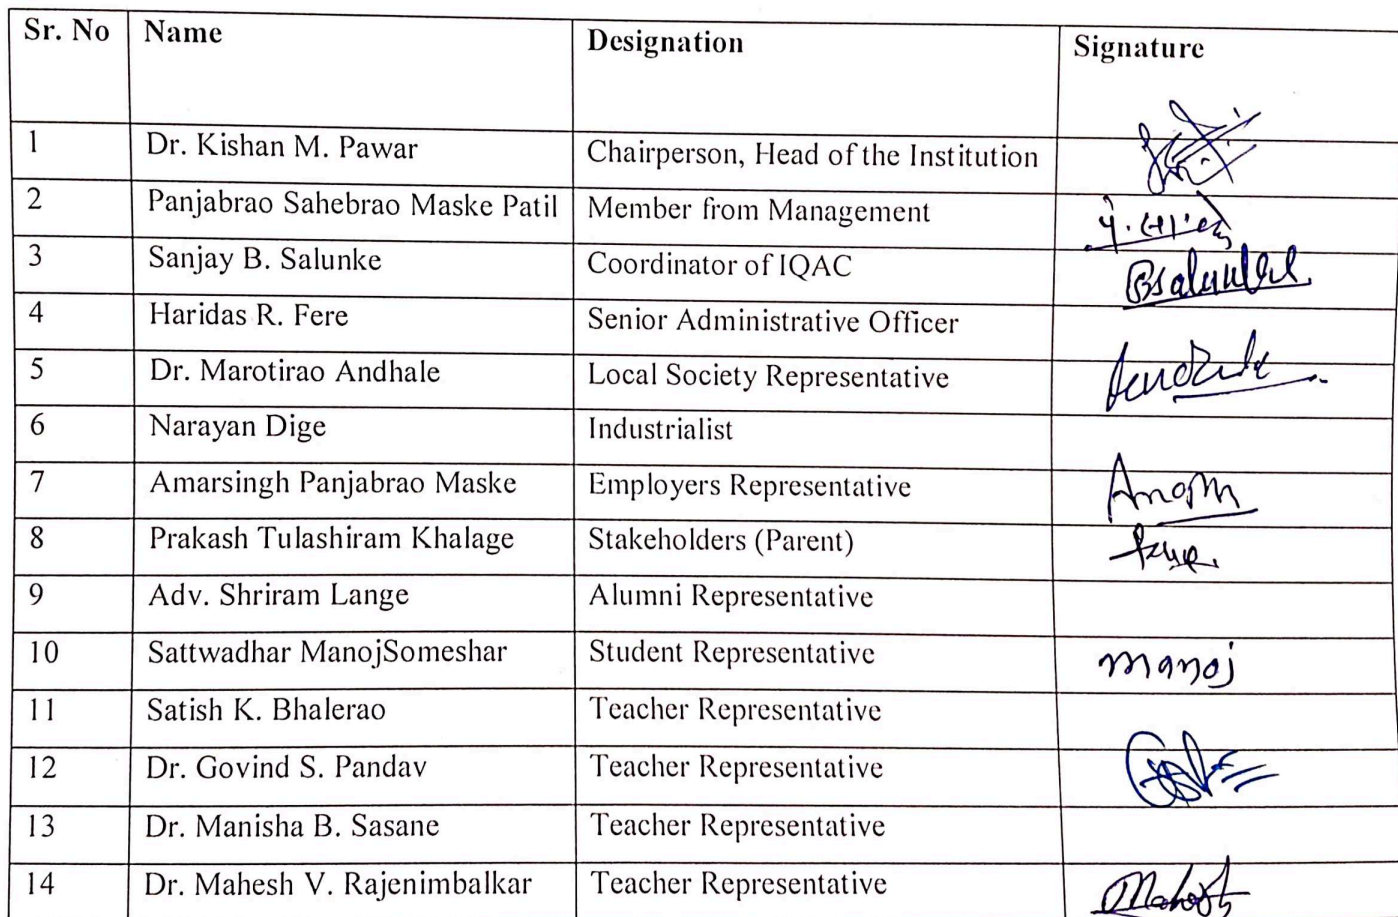 Sr. No Name Designation Signature
1 Dr. Kishan M. Pawar Chairperson, Head of the Institution
2 Panjabrao Sahebrao Maske Patil Member from Management
3 Sanjay B. Salunke Coordinator of IQAC Bsalunke
4 Haridas R. Fere Senior Administrative Officer
5 Dr. Marotirao Andhale Local Society Representative
6 Narayan Dige Industrialist
7 Amarsingh Panjabrao Maske Employers Representative
8 Prakash Tulashiram Khalage Stakeholders (Parent)
9 Adv. Shriram Lange Alumni Representative
10 Sattwadhar ManojSomeshar Student Representative manoj
11 Satish K. Bhalerao Teacher Representative
12 Dr. Govind S. Pandav Teacher Representative
13 Dr. Manisha B. Sasane Teacher Representative
14 Dr. Mahesh V. Rajenimbalkar Teacher Representative